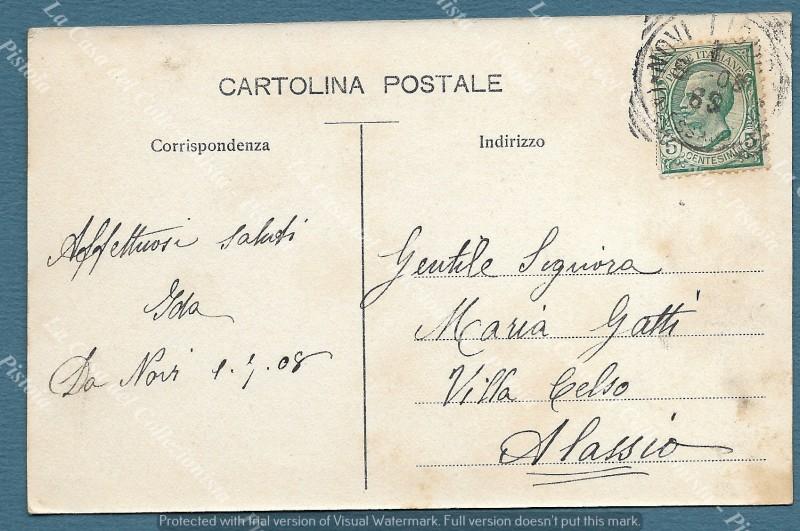 CARTOLINA POSTALE
Corrispondenza
Indirizzo
POSTE ITALIANE
5 CENTESIMI 5
NOVI
Affettuosi saluti
Ida
Da Novi 1.7.08
Gentile Signora
Maria Gatti
Villa Celso
Alassio
La Casa del Collezionista Pistoia
Protected with trial version of Visual Watermark. Full version doesn't put this mark.